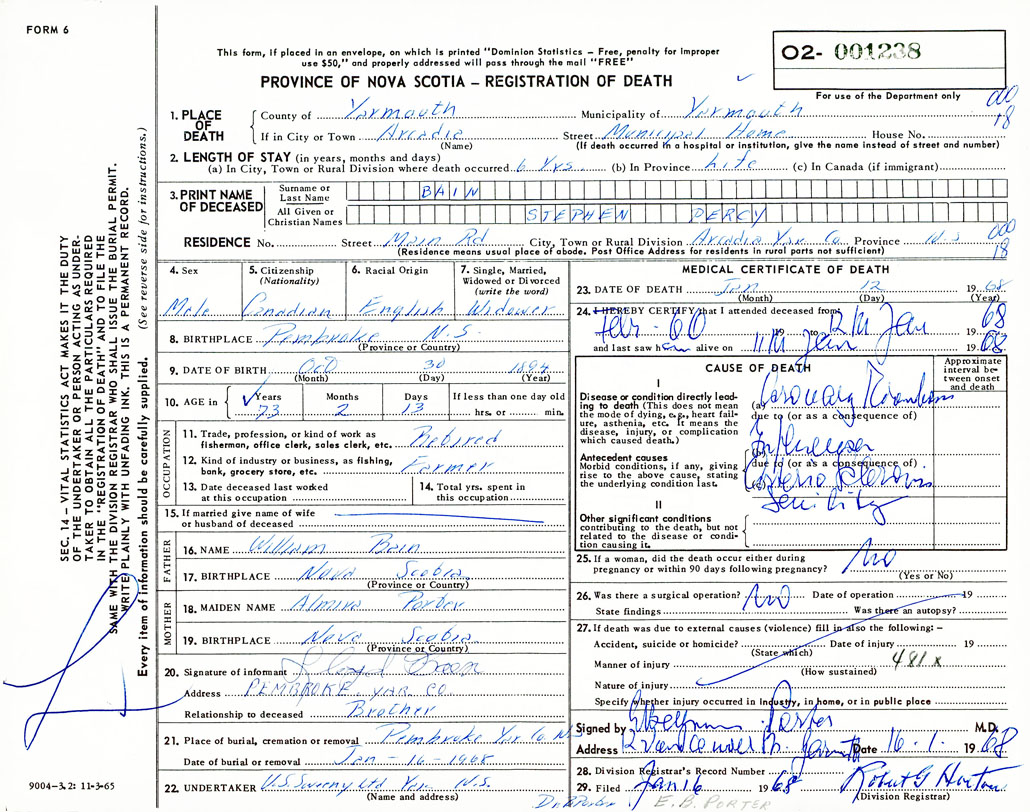 FORM 6
This form, if placed in an envelope, on which is printed "Dominion Statistics – Free, penalty for improper
use $50," and properly addressed will pass through the mail "FREE"
O2- 001238
PROVINCE OF NOVA SCOTIA – REGISTRATION OF DEATH
For use of the Department only
000
18
1. PLACE OF DEATH
County of Yarmouth Municipality of Yarmouth
If in City or Town Arcadia Street Municipal Home House No.
(Name) (If death occurred in a hospital or institution, give the name instead of street and number)
2. LENGTH OF STAY (in years, months and days)
(a) In City, Town or Rural Division where death occurred 6 Yrs (b) In Province Life (c) In Canada (if immigrant)
3. PRINT NAME OF DECEASED
Surname or Last Name BAIN
All Given or Christian Names STEPHEN PERCY
RESIDENCE No. Street Main Rd City, Town or Rural Division Arcadia Yar. Co. Province N.S
(Residence means usual place of abode. Post Office Address for residents in rural parts not sufficient)
000
18
4. Sex
Male
5. Citizenship
(Nationality)
Canadian
6. Racial Origin
English
7. Single, Married,
Widowed or Divorced
(write the word)
Widower
8. BIRTHPLACE Pembroke N.S.
(Province or Country)
9. DATE OF BIRTH Oct 30 1894
(Month) (Day) (Year)
10. AGE in
Years 73
Months 2
Days 13
If less than one day old
hrs. or min.
OCCUPATION
11. Trade, profession, or kind of work as
fisherman, office clerk, sales clerk, etc. Retired
12. Kind of industry or business, as fishing,
bank, grocery store, etc. Farmer
13. Date deceased last worked
at this occupation
14. Total yrs. spent in
this occupation
15. If married give name of wife
or husband of deceased
FATHER
16. NAME William Bain
17. BIRTHPLACE Nova Scotia
(Province or Country)
MOTHER
18. MAIDEN NAME Almira Porter
19. BIRTHPLACE Nova Scotia
(Province or Country)
20. Signature of informant Lloyd Bain
Address PEMBROKE YAR. CO.
Relationship to deceased Brother
21. Place of burial, cremation or removal Pembroke Yar Co. NS
Date of burial or removal Jan – 16 – 1968
22. UNDERTAKER U.S. Sweeny Ltd Yar. N.S.
(Name and address)
MEDICAL CERTIFICATE OF DEATH
23. DATE OF DEATH Jan 12 1968
(Month) (Day) (Year)
24. I HEREBY CERTIFY that I attended deceased from
60 12th Jan 1968
and last saw h alive on 11th Jan 1968
CAUSE OF DEATH
Approximate
interval be-
tween onset
and death
I
Disease or condition directly lead-
ing to death (This does not
mean the mode of dying, e.g., heart fail-
ure, asthenia, etc. It means the
disease, injury, or complication
which caused death.)
(a) Coronary Thrombosis
due to (or as a consequence of)
Influenza
Antecedent causes
Morbid conditions, if any, giving
rise to the above cause, stating
the underlying condition last.
due to (or as a consequence of)
(c)
Senility
II
Other significant conditions
contributing to the death, but not
related to the disease or condi-
tion causing it.
25. If a woman, did the death occur either during
pregnancy or within 90 days following pregnancy? No
(Yes or No)
26. Was there a surgical operation? No Date of operation 19
State findings Was there an autopsy?
27. If death was due to external causes (violence) fill in also the following: –
Accident, suicide or homicide? Date of injury 19
(State which)
Manner of injury 481 x
(How sustained)
Nature of injury
Specify whether injury occurred in industry, in home, or in public place
Signed by Porter M.D.
Address 2 Vancouver St. Yarmouth Date 16.1. 1968
28. Division Registrar's Record Number
29. Filed Jan 16 1968 Robert G Horton
(Division Registrar)
Dr. Porter E. B. PORTER
SEC. 14 – VITAL STATISTICS ACT MAKES IT THE DUTY
OF THE UNDERTAKER OR PERSON ACTING AS UNDER-
TAKER TO OBTAIN ALL THE PARTICULARS REQUIRED
IN THE "REGISTRATION OF DEATH" AND TO FILE THE
SAME WITH THE DIVISION REGISTRAR WHO SHALL ISSUE THE BURIAL PERMIT.
WRITE PLAINLY WITH UNFADING INK. THIS IS A PERMANENT RECORD.
Every item of information should be carefully supplied. (See reverse side for instructions.)
9004-3.2: 11-3-65